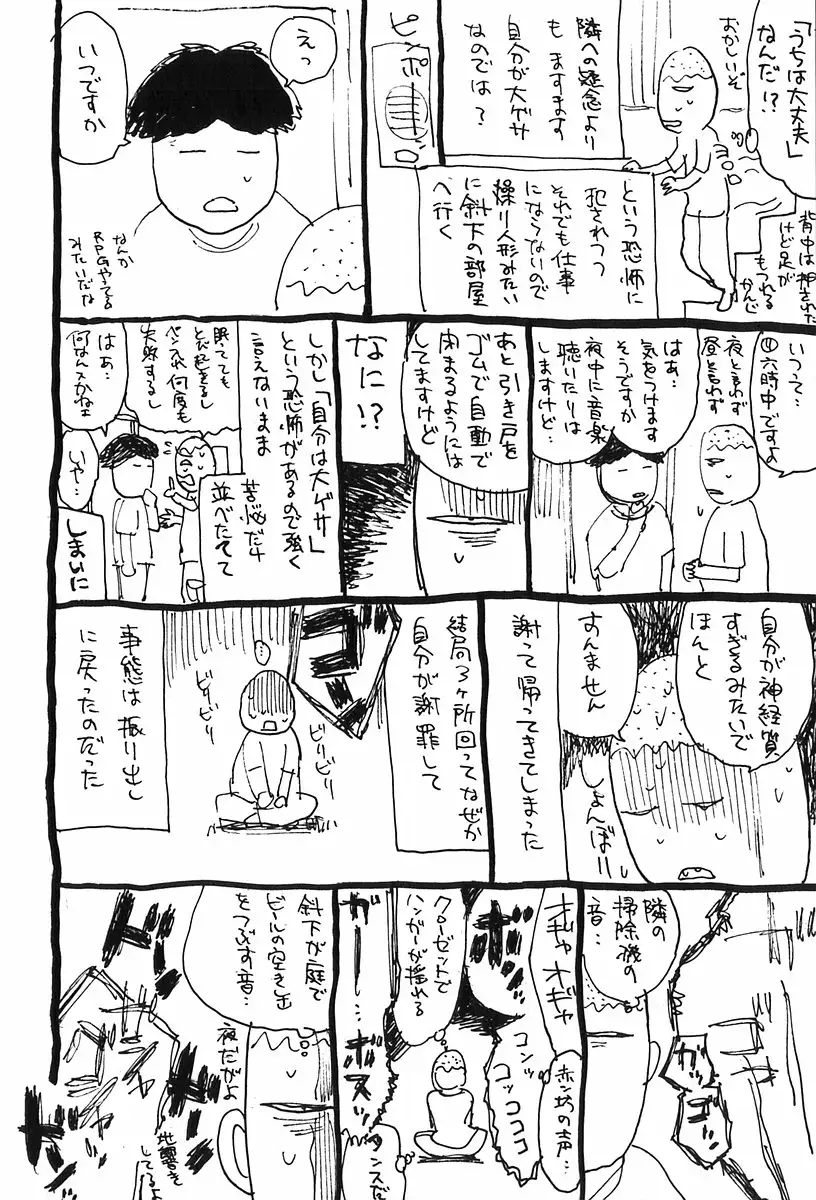 「うちは大丈夫」
なんだ!?
おかしいぞ
背中は押された
けど足が
もつれる
かんじ
隣への疑念より
も ますます
自分が大ゲサ
なのでは?
という恐怖に
犯されつつ
それでも仕事
にならないので
操り人形みたい
に斜下の部屋
へ行く
ピンポーン
えっ
いつですか
なんか
RPGやってる
みたいだな
いつって…
四六時中ですよ
夜と言わず
昼と言わず
はぁ…
気をつけます
そうですか
夜中に音楽
聴いたりは
しますけど…
あと引き戸を
ゴムで自動で
閉まるようには
してますけど
なに!?
しかし「自分は大ゲサ」
という恐怖があるので強く
言えないまま
苦悩だけ
並べたてて
眠ってても
とび起きるし
ペン入れ何度も
失敗するし
はぁ…
何なんスかねェ
いや…
しまいに
自分が神経質
すぎるみたいで
ほんと
すんません
しょんぼりー
謝って帰ってきてしまった
結局3ヶ所回ってなぜか
自分が謝罪して
ゴン
…
ビリビリ
ビリビリ
事態は振り出し
に戻ったのだった
ガッ
ゴン
隣の
掃除機の
音…
オギャオギャ
赤ン坊の声…
コンッ
コッココココ
クローゼットで
ハンガーが揺れる
ガー…
ボスッ
タンスだ
斜下が庭で
ビールの空き缶
をつぶす音…
夜だがよ
ドド
ドド
地響き
してるよ